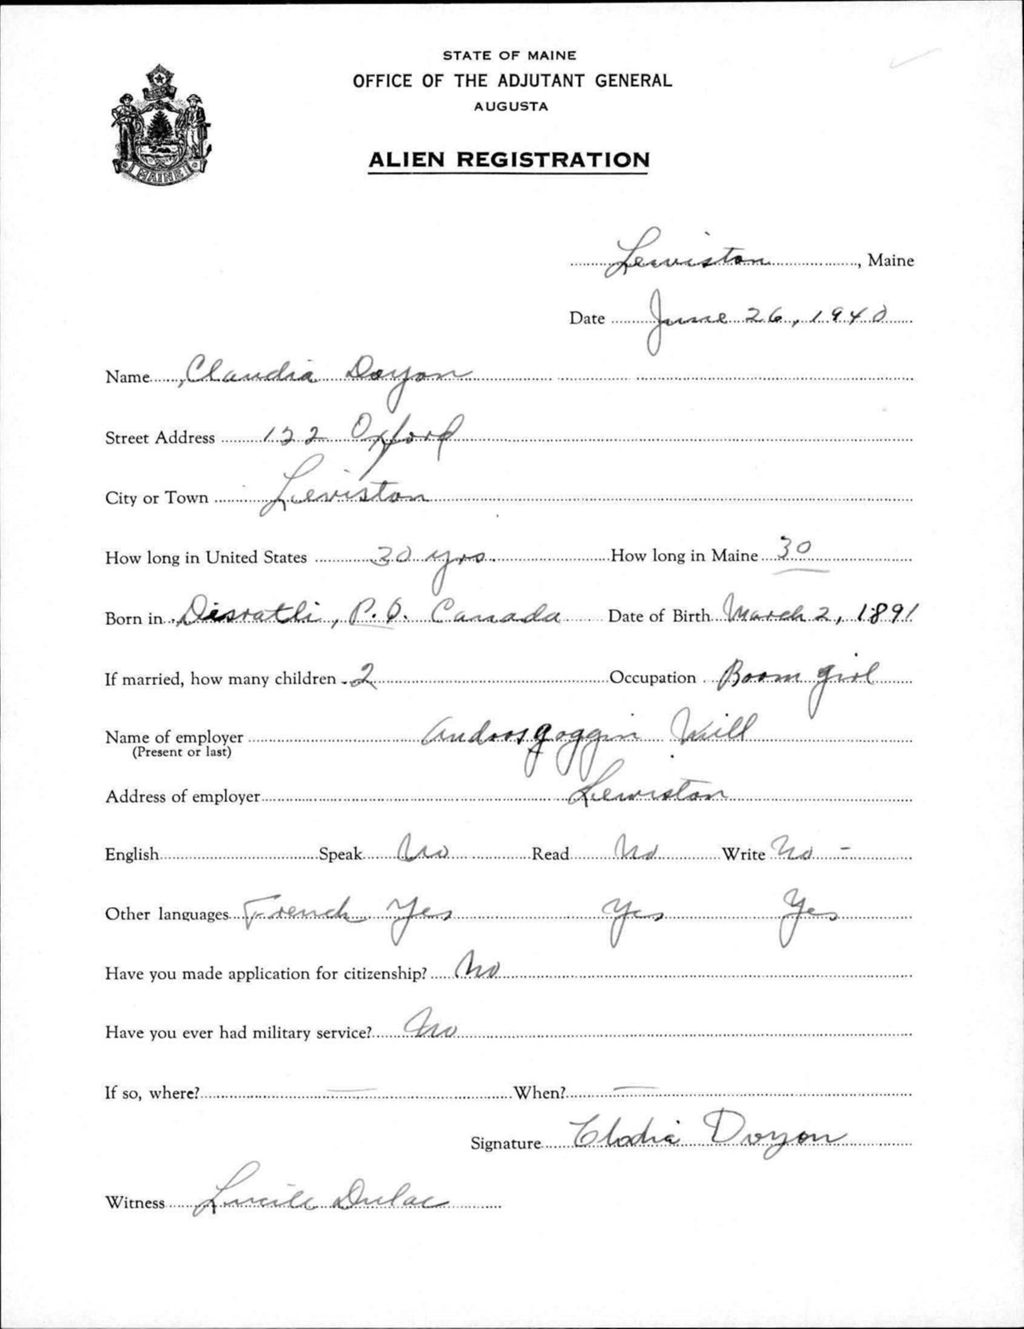 STATE OF MAINE
OFFICE OF THE ADJUTANT GENERAL
AUGUSTA
ALIEN REGISTRATION
MAINE
Lewiston, Maine
Date June 26, 1940
Name Claudia Doyon
Street Address 122 Oxford
City or Town Lewiston
How long in United States 30 yrs. How long in Maine 30
Born in Disratli, P.Q. Canada Date of Birth March 2, 1891
If married, how many children 2 Occupation Boom girl
Name of employer Androsgoggin Mill
(Present or last)
Address of employer Lewiston
English Speak No Read No Write No -
Other languages French Yes Yes Yes
Have you made application for citizenship? No
Have you ever had military service? No
If so, where? — When? —
Signature Clodia Doyon
Witness Lucille Dulac